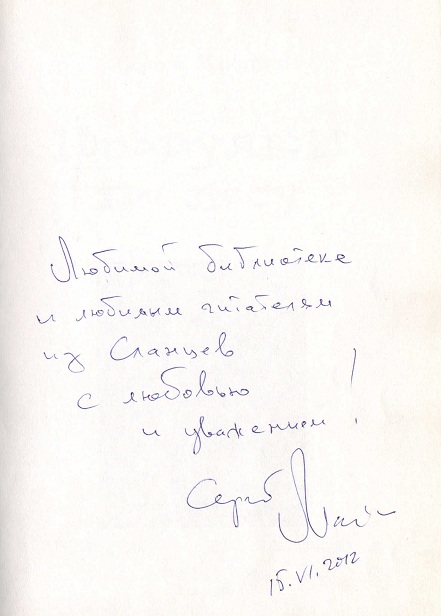 Любимой библиотеке
и любимым читателям
из Сланцев
с любовью
и уважением!
15.VI.2012